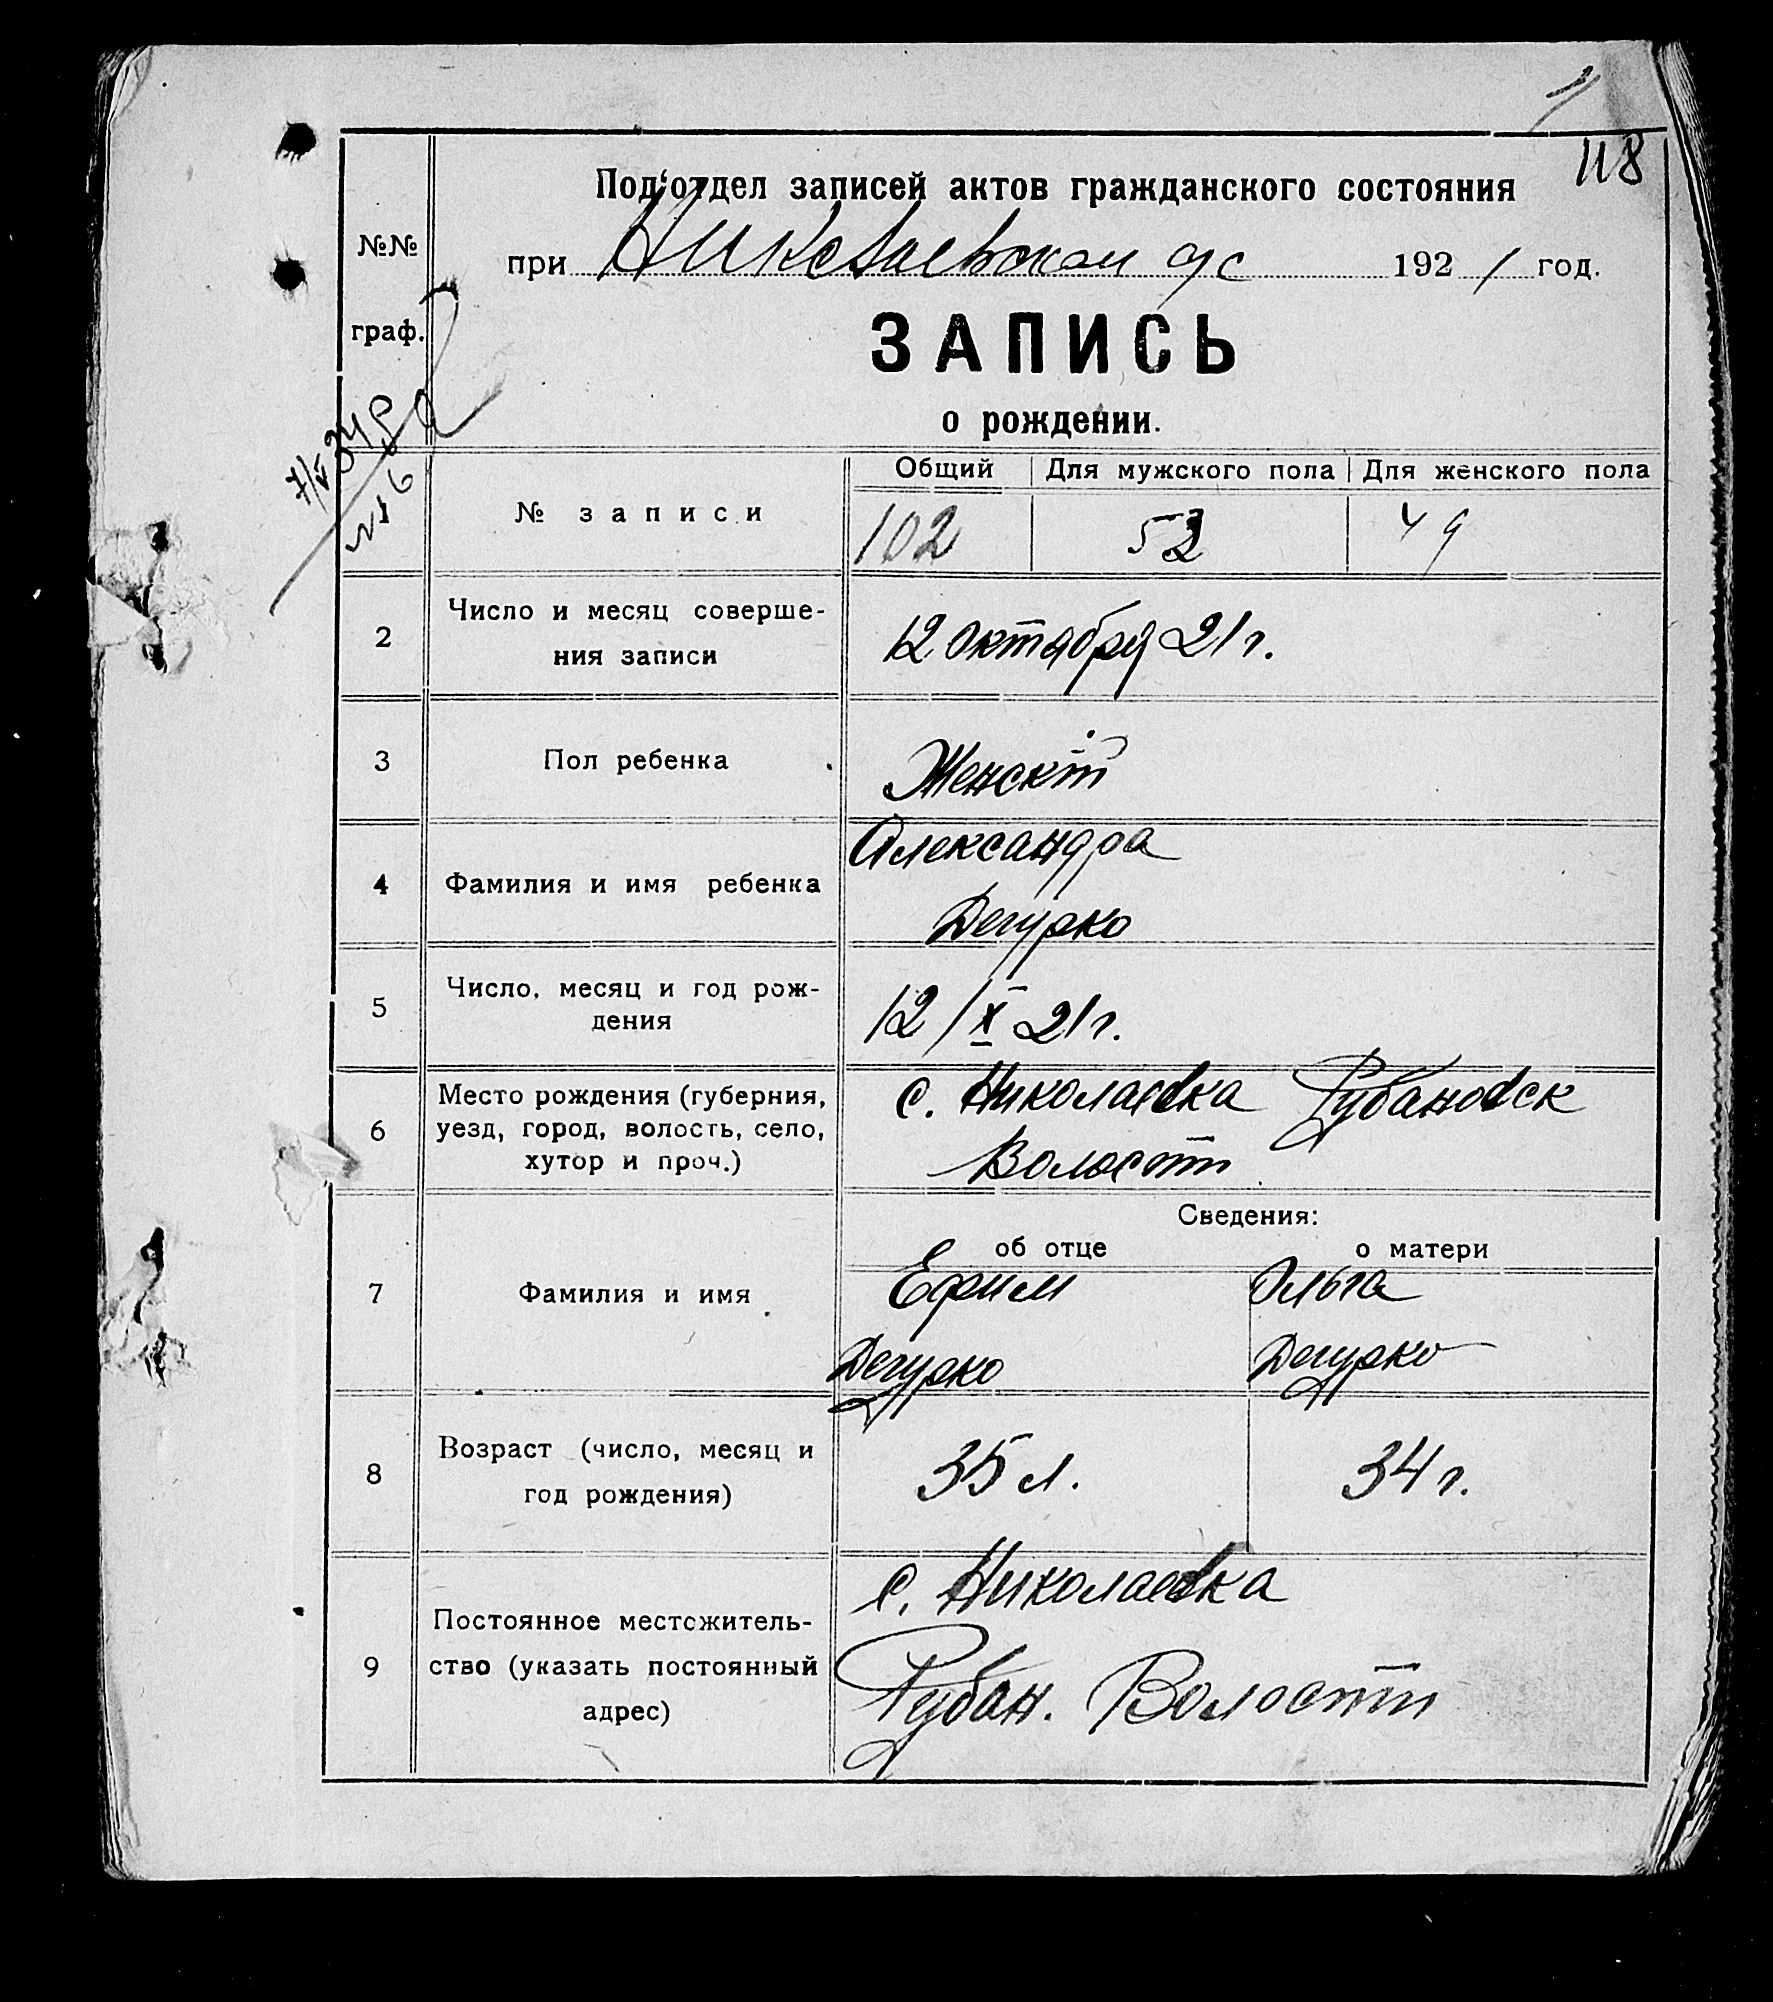 118
Под'отдел записей актов гражданского состояния
№№
при Николаевском 1921 год.
граф.
ЗАПИСЬ
о рождении.
Общий Для мужского пола Для женского пола
1 № записи 102 53 49
2 Число и месяц соверше-
ния записи
12 октября 21 г.
3 Пол ребенка Женскій
4 Фамилия и имя ребенка
Александра
Дегурко
5 Число, месяц и год рож-
дения
12/X 21 г.
6 Место рождения (губерния,
уезд, город, волость, село,
хутор и проч.)
с. Николаевка Рубановск
Волости
Сведения:
об отце о матери
7 Фамилия и имя
Ефим Ольга
Дегурко Дегурко
8 Возраст (число, месяц и
год рождения)
35 л. 34 г.
9 Постоянное местожитель-
ство (указать постоянный
адрес)
с. Николаевка
Рубан. Волости